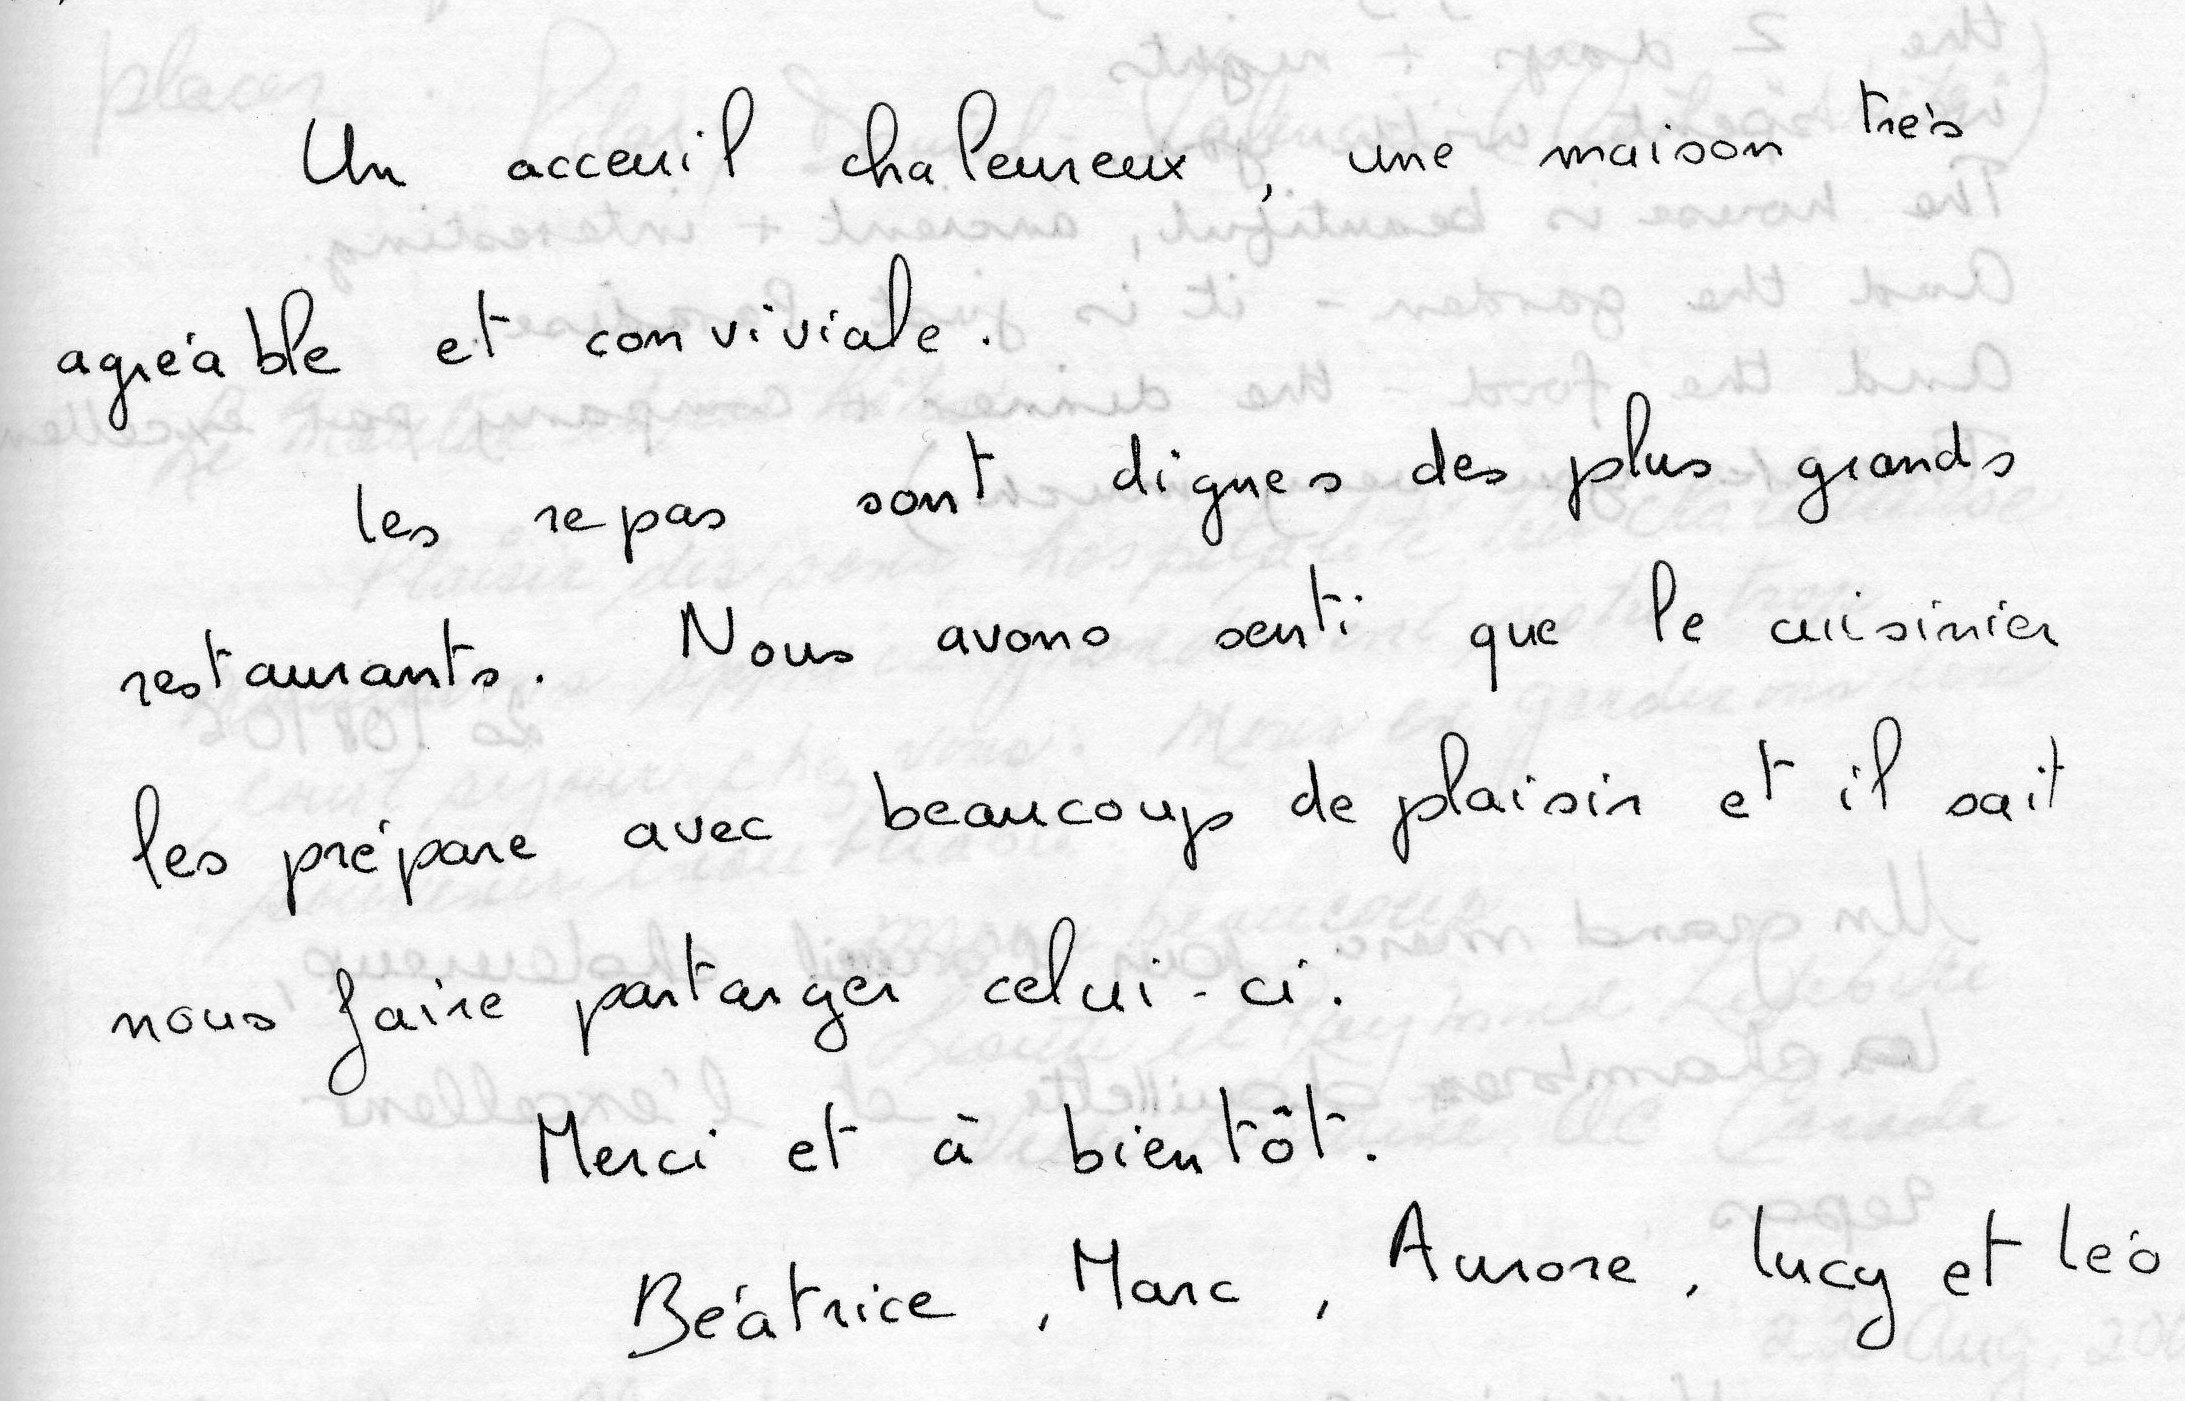 Un acceuil chaleureux, une maison très
agréable et conviviale.
les repas sont dignes des plus grands
restaurants. Nous avons senti que le cuisinier
les prépare avec beaucoup de plaisir et il sait
nous faire partarger celui-ci.
Merci et à bientôt.
Béatrice, Marc, Aurore, lucy et léo